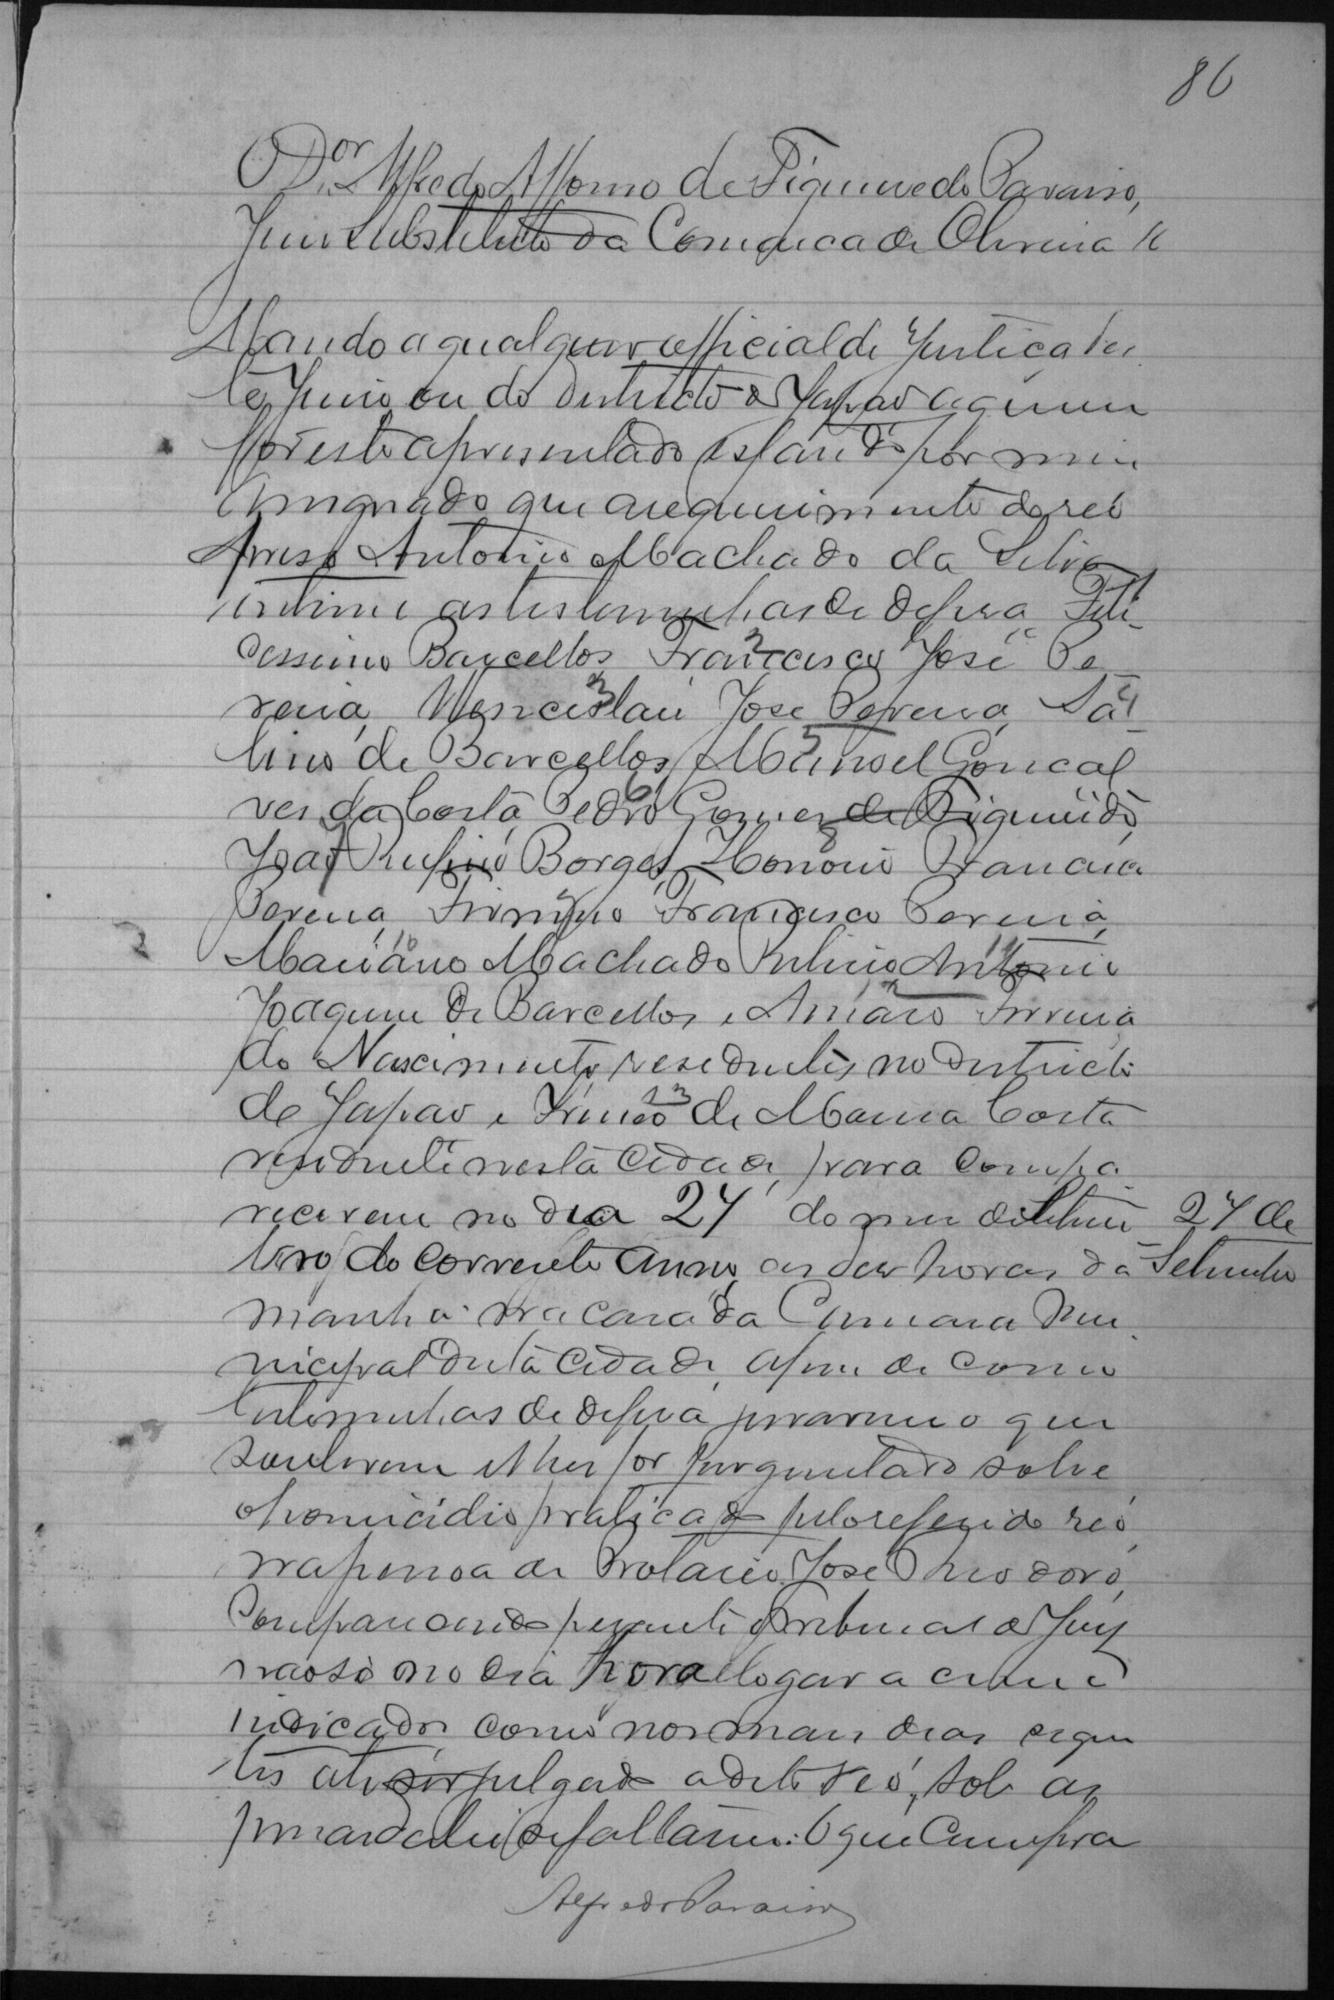 86
O D.or Alfredo Affonso de Figueiredo Paraiso,
Juiz Substituto da Comarca de Oliveira &
Mando a qualquer official de Justiça des
te Juizo ou do districto de Japão a quem
for este apresentado, estando por mim
assignado que a requerimento do reo
preso Antonio Machado da Silva
intime as testemunhas de defesa Feli
cissimo Barcellos, Francisco José Pe
reira, Wenceslau José Pereira, Sa
lino de Barcellos, Manoel Goncal
ves da Costa, Pedro Gomes de Figueiredo,
João Rufino Borges, Honorio Francisco
Pereira, Firmino Francisco Pereira,
Marianno Machado Rufino, Antonio
Joaquim de Barcellos e Amaro Ferreira
do Nascimento, residentes no districto
de Japão e Irineo de Moura Costa
residente nesta cidade, para compa
recerem no dia 24 do mez de Setem
24 de
bro do corrente anno, as dez horas da
Setembro
manhã na casa da Camara Mu
nicipal desta cidade, afim de como
testemunhas de defesa jurarem o que
souberem e lhes for perguntado sobre
o homicidio praticado pelo referido reo
na pessoa de Protacio José Theodoro,
comparecendo perante o Tribunal do Jury
não só no dia hora e logar acima
indicados, como nos mais dias seguin
tes até ser julgado o dito reo, sob as
penas da lei se faltarem. O que cumpra
Alfredo Paraiso